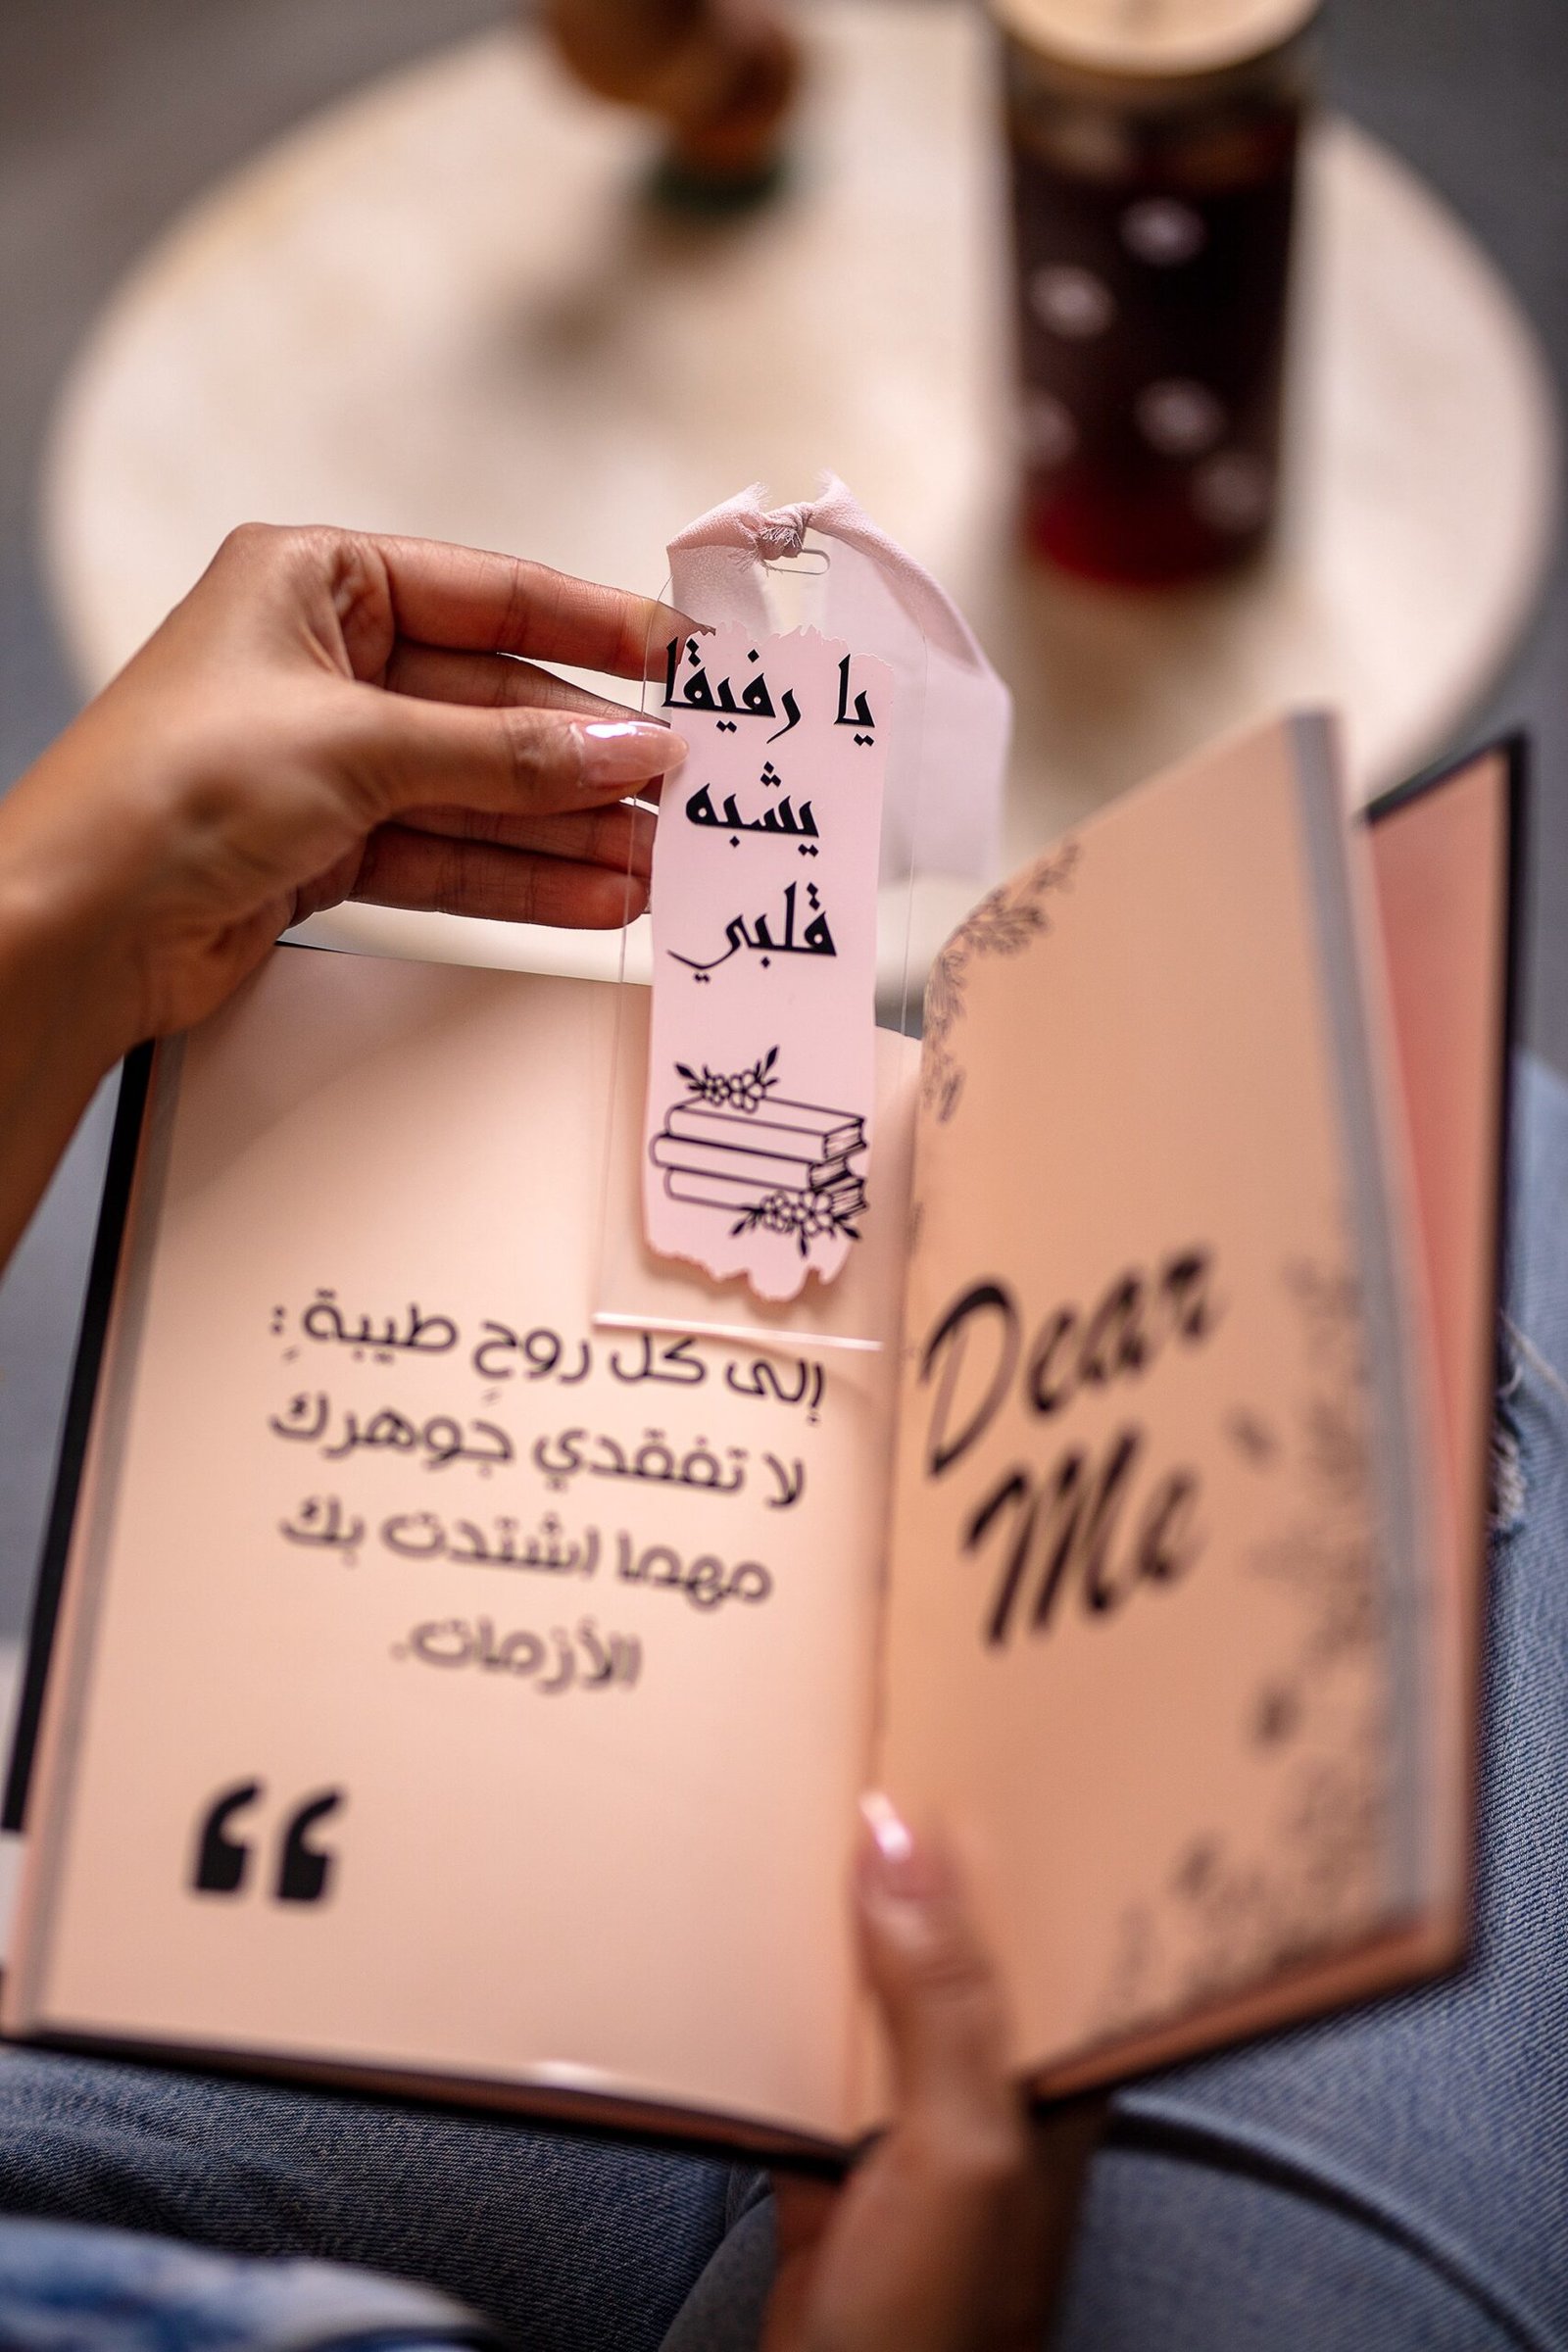 يا رفيقا
يشبه
قلبي
إلى كل روحِ طيبةِ :
لا تفقدي جوهرك
مهما اشتدت بك
الأزمات.
“
Dear
Me